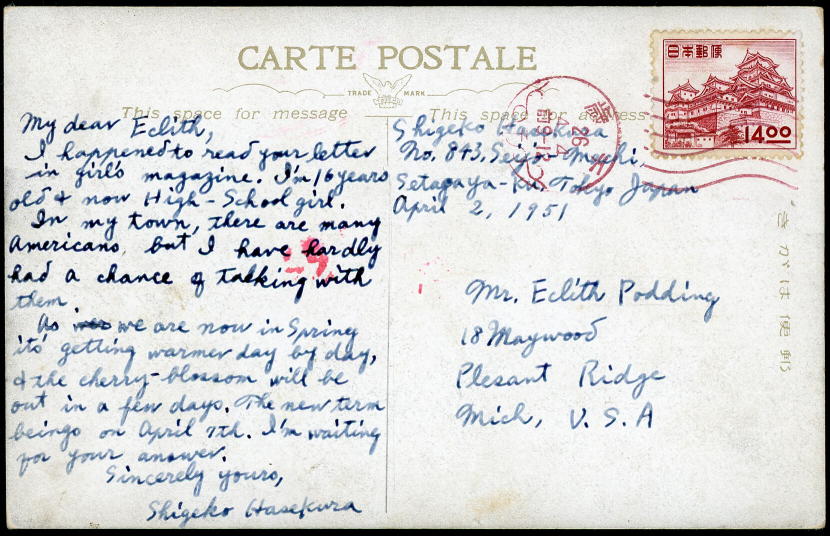 CARTE POSTALE
TRADE MARK
This space for message
This space for address
日本郵便
14.00
26
4
My dear Eclith,
I happened to read your letter
in girl's magazine. I'm 16 years
old & now High-School girl.
In my town, there are many
Americans, but I have hardly
had a chance of talking with
them
As we are now in Spring
its getting warmer day by day,
& the cherry-blossom will be
out in a few days. The new term
beings on April 7th. I'm waiting
for your answer.
Sincerely yours,
Shigeko Hasekura
Shigeko Hasekura
No. 843, Seijo-Machi,
Setagaya-Ku, Tokyo Japan
April 2, 1951
Mr. Eclith Podding
18 Maywood
Plesant Ridge
Mich, U.S.A
きがは便郵